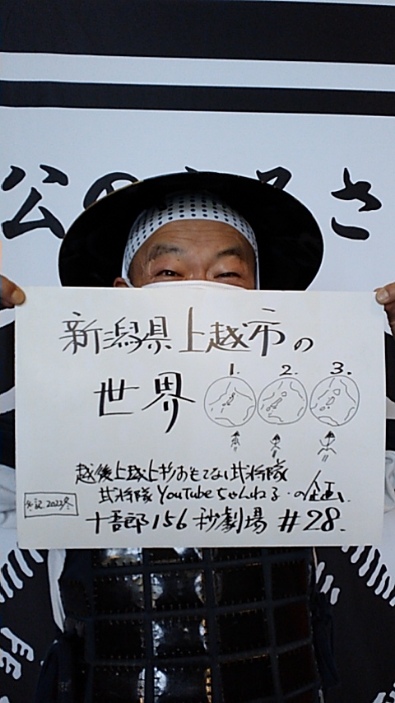 公のふるさ
新潟県上越市の
世界
1. 2. 3.
越後上越上杉おもてなし武将隊
武将隊YouTubeちゃんねる の企画
十吾郎156秒劇場 #28.